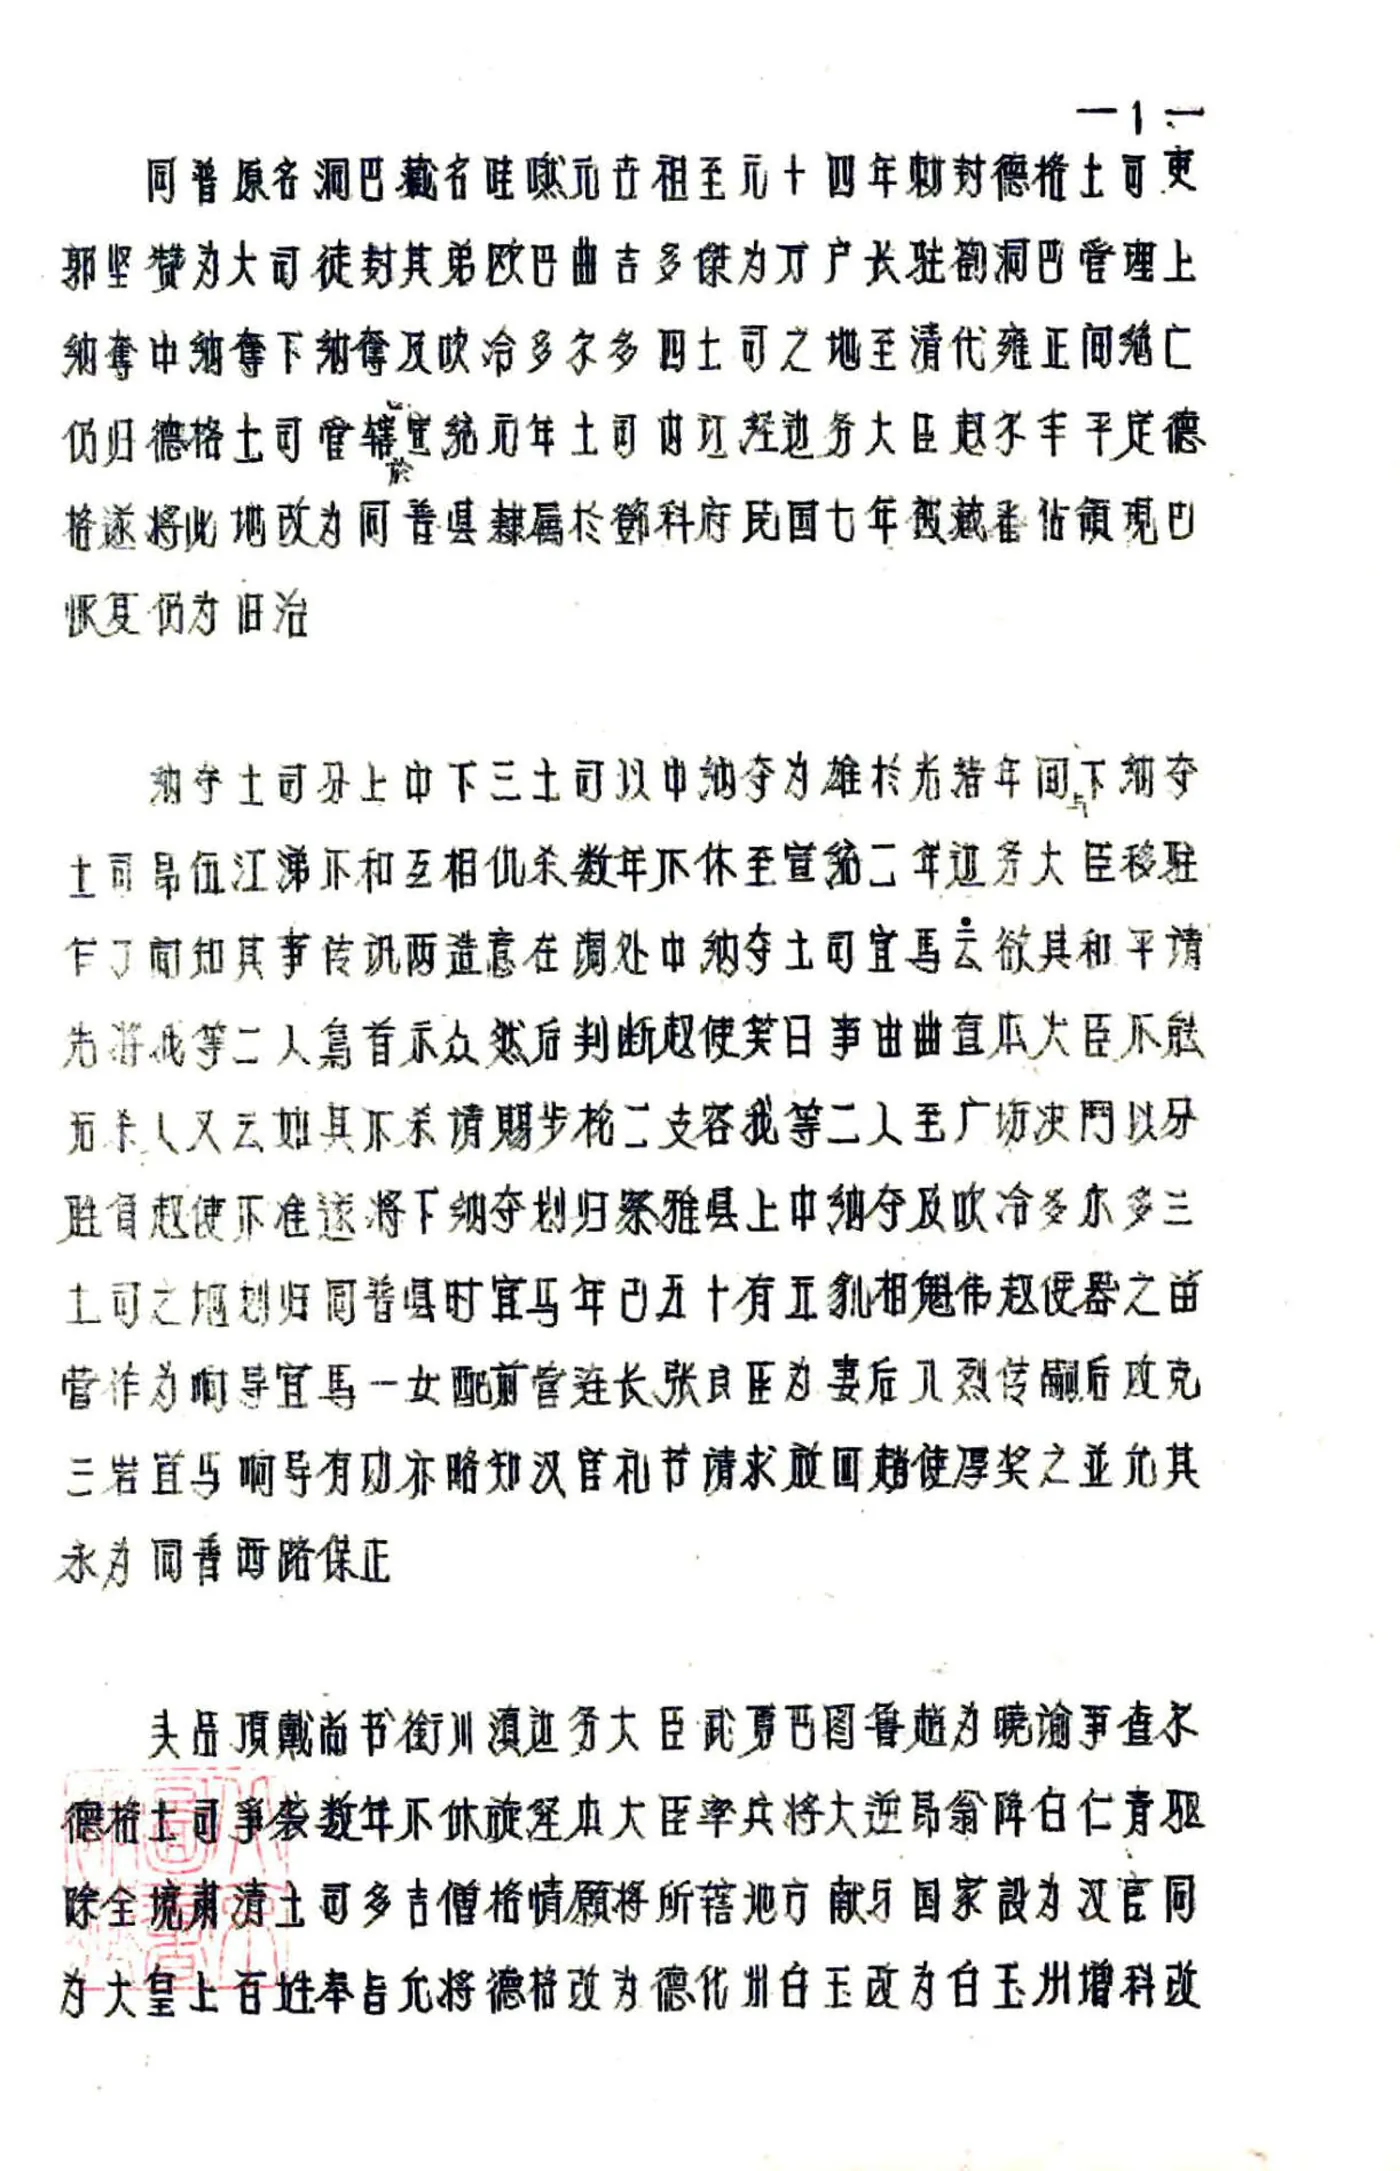 —1—
同普原名洞巴藏名哇噗元世祖至元十四年勅封德格土司更
郭坚赞为大司徒封其弟欧巴曲吉多傑为万户长驻劄洞巴管理上
纳夺中纳夺下纳夺及吹冷多尔多四土司之地至清代雍正间绝亡
仍归德格土司管辖宣統元年土司内讧经边务大臣赵尔丰平定德
於
格遂将此地改为同普县隸属於鄧科府民国七年被藏番佔領現已
恢复仍为旧治
纳夺土司分上中下三土司以中纳夺为雄於光绪年间与下纳夺
土司昂伍江涕不和互相仇杀数年不休至宣統二年边务大臣移驻
乍丫闻知其事传讯两造意在调处中纳夺土司宜马云欲其和平请
先将我等二人梟首示众然后判断赵使笑曰事由曲直本大臣不能
而杀人又云如其不杀请赐步枪二支容我等二人至广场决鬥以分
胜负赵使不准遂将下纳夺划归察雅县上中纳夺及吹冷多尔多三
土司之地划归同普县时宜马年已五十有五貌相魁伟赵使器之留
营作为响导宜马一女配前营连长张良臣为妻后入烈传嗣后攻克
三岩宜马响导有功亦略知汉官礼节请求放回趙使厚奖之並允其
永为同普西路保正
头品頂戴尚书衔川滇边务大臣武勇巴图鲁趙为晓谕事查尔
德格土司争袭数年不休旋经本大臣率兵将大逆昂翁降白仁青驱
除全境肃清土司多吉僧格情願将所辖地方献于国家設为汉官同
为大皇上百姓奉旨允将德格改为德化州白玉改为白玉州增科改